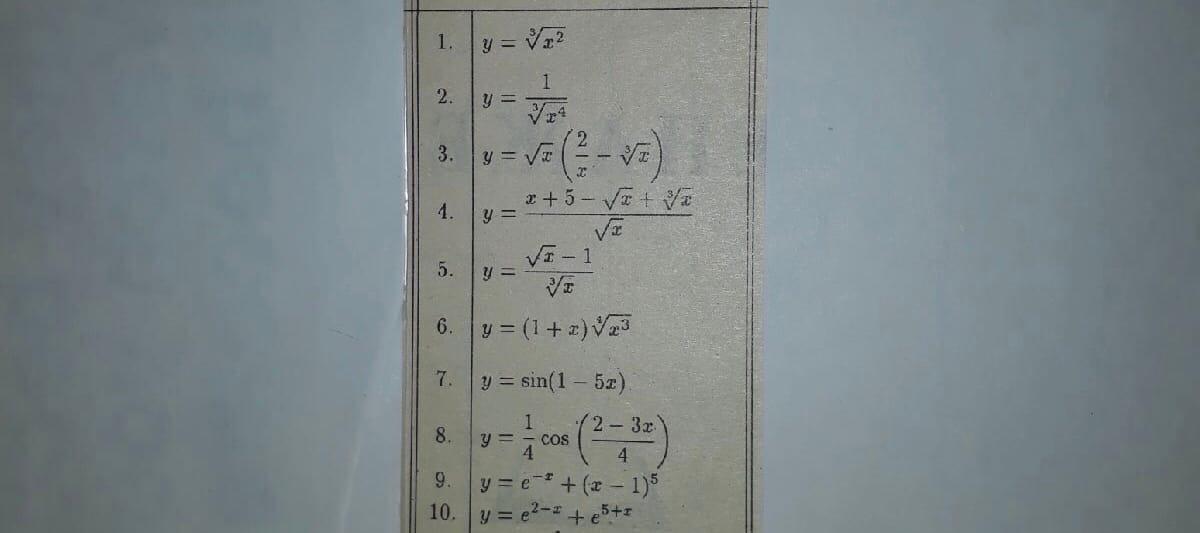 1. y = ∛x²
2. y = 1/∛x⁴
3. y = √x (2/x − ∛x)
4. y = (x + 5 − √x + ∛x)/√x
5. y = (√x − 1)/∛x
6. y = (1 + x)∜x³
7. y = sin(1 − 5x)
8. y = 1/4 cos ((2 − 3x)/4)
9. y = e⁻ˣ + (x − 1)⁵
10. y = e²⁻ˣ + e⁵⁺ˣ